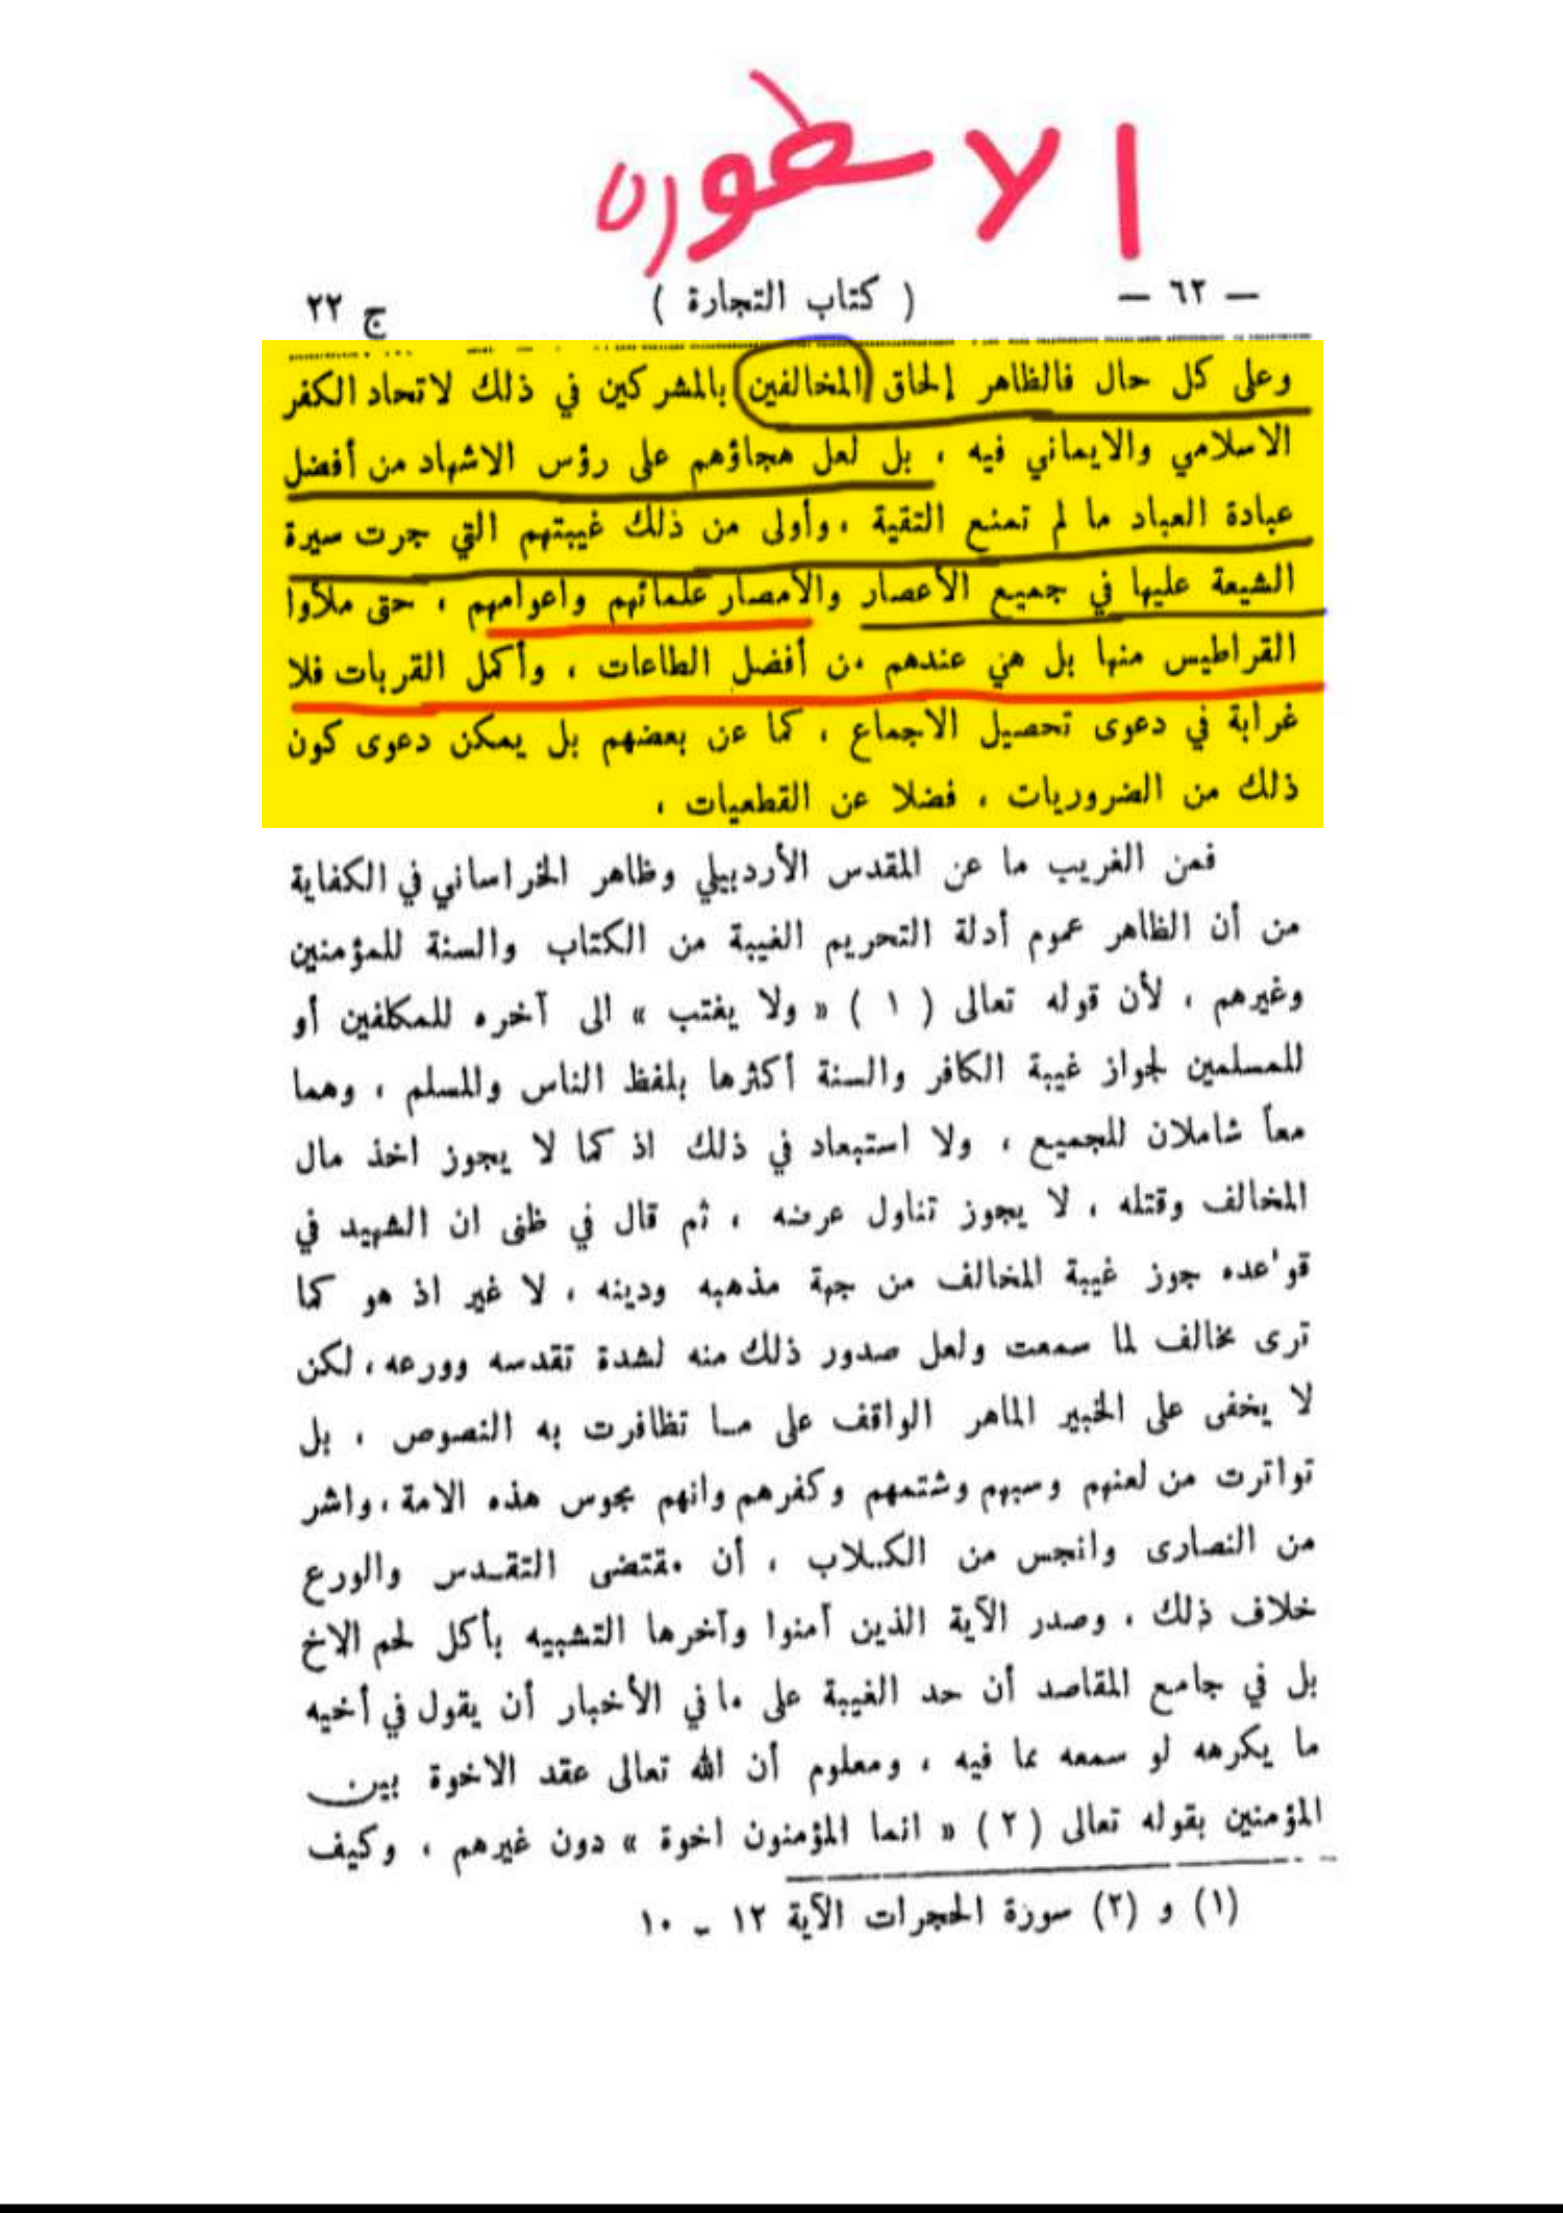 الاسطوره
ج ٢٢ ( كتاب التجارة ) — ٦٢ —
وعلى كل حال فالظاهر إلحاق المخالفين بالمشركين في ذلك لاتحاد الكفر
الاسلامي والايماني فيه ، بل لعل هجاؤهم على رؤس الاشهاد من أفضل
عبادة العباد ما لم تمنع التقية ، وأولى من ذلك غيبتهم التي جرت سيرة
الشيعة عليها في جميع الأعصار والأمصار علمائهم وأعوامهم ، حتى ملأوا
القراطيس منها بل هي عندهم من أفضل الطاعات ، وأكمل القربات فلا
غرابة في دعوى تحصيل الاجماع ، كما عن بعضهم بل يمكن دعوى كون
ذلك من الضروريات ، فضلا عن القطعيات ،
فمن الغريب ما عن المقدس الأردبيلي وظاهر الخراساني في الكفاية
من أن الظاهر عموم أدلة التحريم الغيبة من الكتاب والسنة للمؤمنين
وغيرهم ، لأن قوله تعالى ( ١ ) « ولا يغتب » الى آخره للمكلفين أو
للمسلمين لجواز غيبة الكافر والسنة أكثرها بلفظ الناس والمسلم ، وهما
معاً شاملان للجميع ، ولا استبعاد في ذلك اذ كما لا يجوز اخذ مال
المخالف وقتله ، لا يجوز تناول عرضه ، ثم قال في ظنى ان الشهيد في
قواعده جوز غيبة المخالف من جهة مذهبه ودينه ، لا غير اذ هو كما
ترى مخالف لما سمعت ولعل صدور ذلك منه لشدة تقدسه وورعه ، لكن
لا يخفى على الخبير الماهر الواقف على مـا تظافرت به النصوص ، بل
تواترت من لعنهم وسبهم وشتمهم وكفرهم وانهم مجوس هذه الامة ، واشر
من النصارى وانجس من الكـلاب ، أن مقتضى التقـدس والورع
خلاف ذلك ، وصدر الآية الذين آمنوا وآخرها التشبيه بأكل لحم الاخ
بل في جامع المقاصد أن حد الغيبة على ما في الأخبار أن يقول في أخيه
ما يكرهه لو سمعه مما فيه ، ومعلوم أن الله تعالى عقد الاخوة بين
المؤمنين بقوله تعالى ( ٢ ) « انما المؤمنون اخوة » دون غيرهم ، وكيف
(١) و (٢) سورة الحجرات الآية ١٢ - ١٠